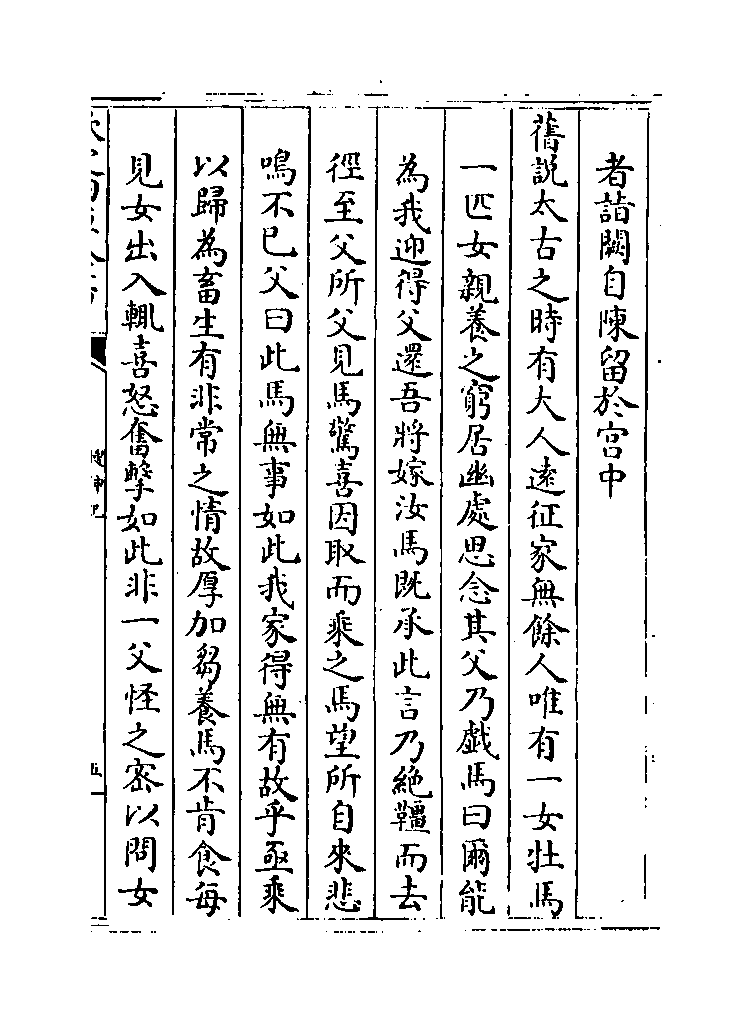 者詣闕自陳留於宫中
舊説太古之時有大人逺征家無餘人唯有一女牡馬
一匹女親養之窮居幽處思念其父乃戯馬曰爾能
為我迎得父還吾將嫁汝馬既承此言乃絶韁而去
徑至父所父見馬驚喜因取而乘之馬望所自來悲
鳴不已父曰此馬無事如此我家得無有故乎亟乘
以歸為畜生有非常之情故厚加芻養馬不肯食每
見女出入輒喜怒奮擊如此非一父怪之宻以問女
搜神記
五